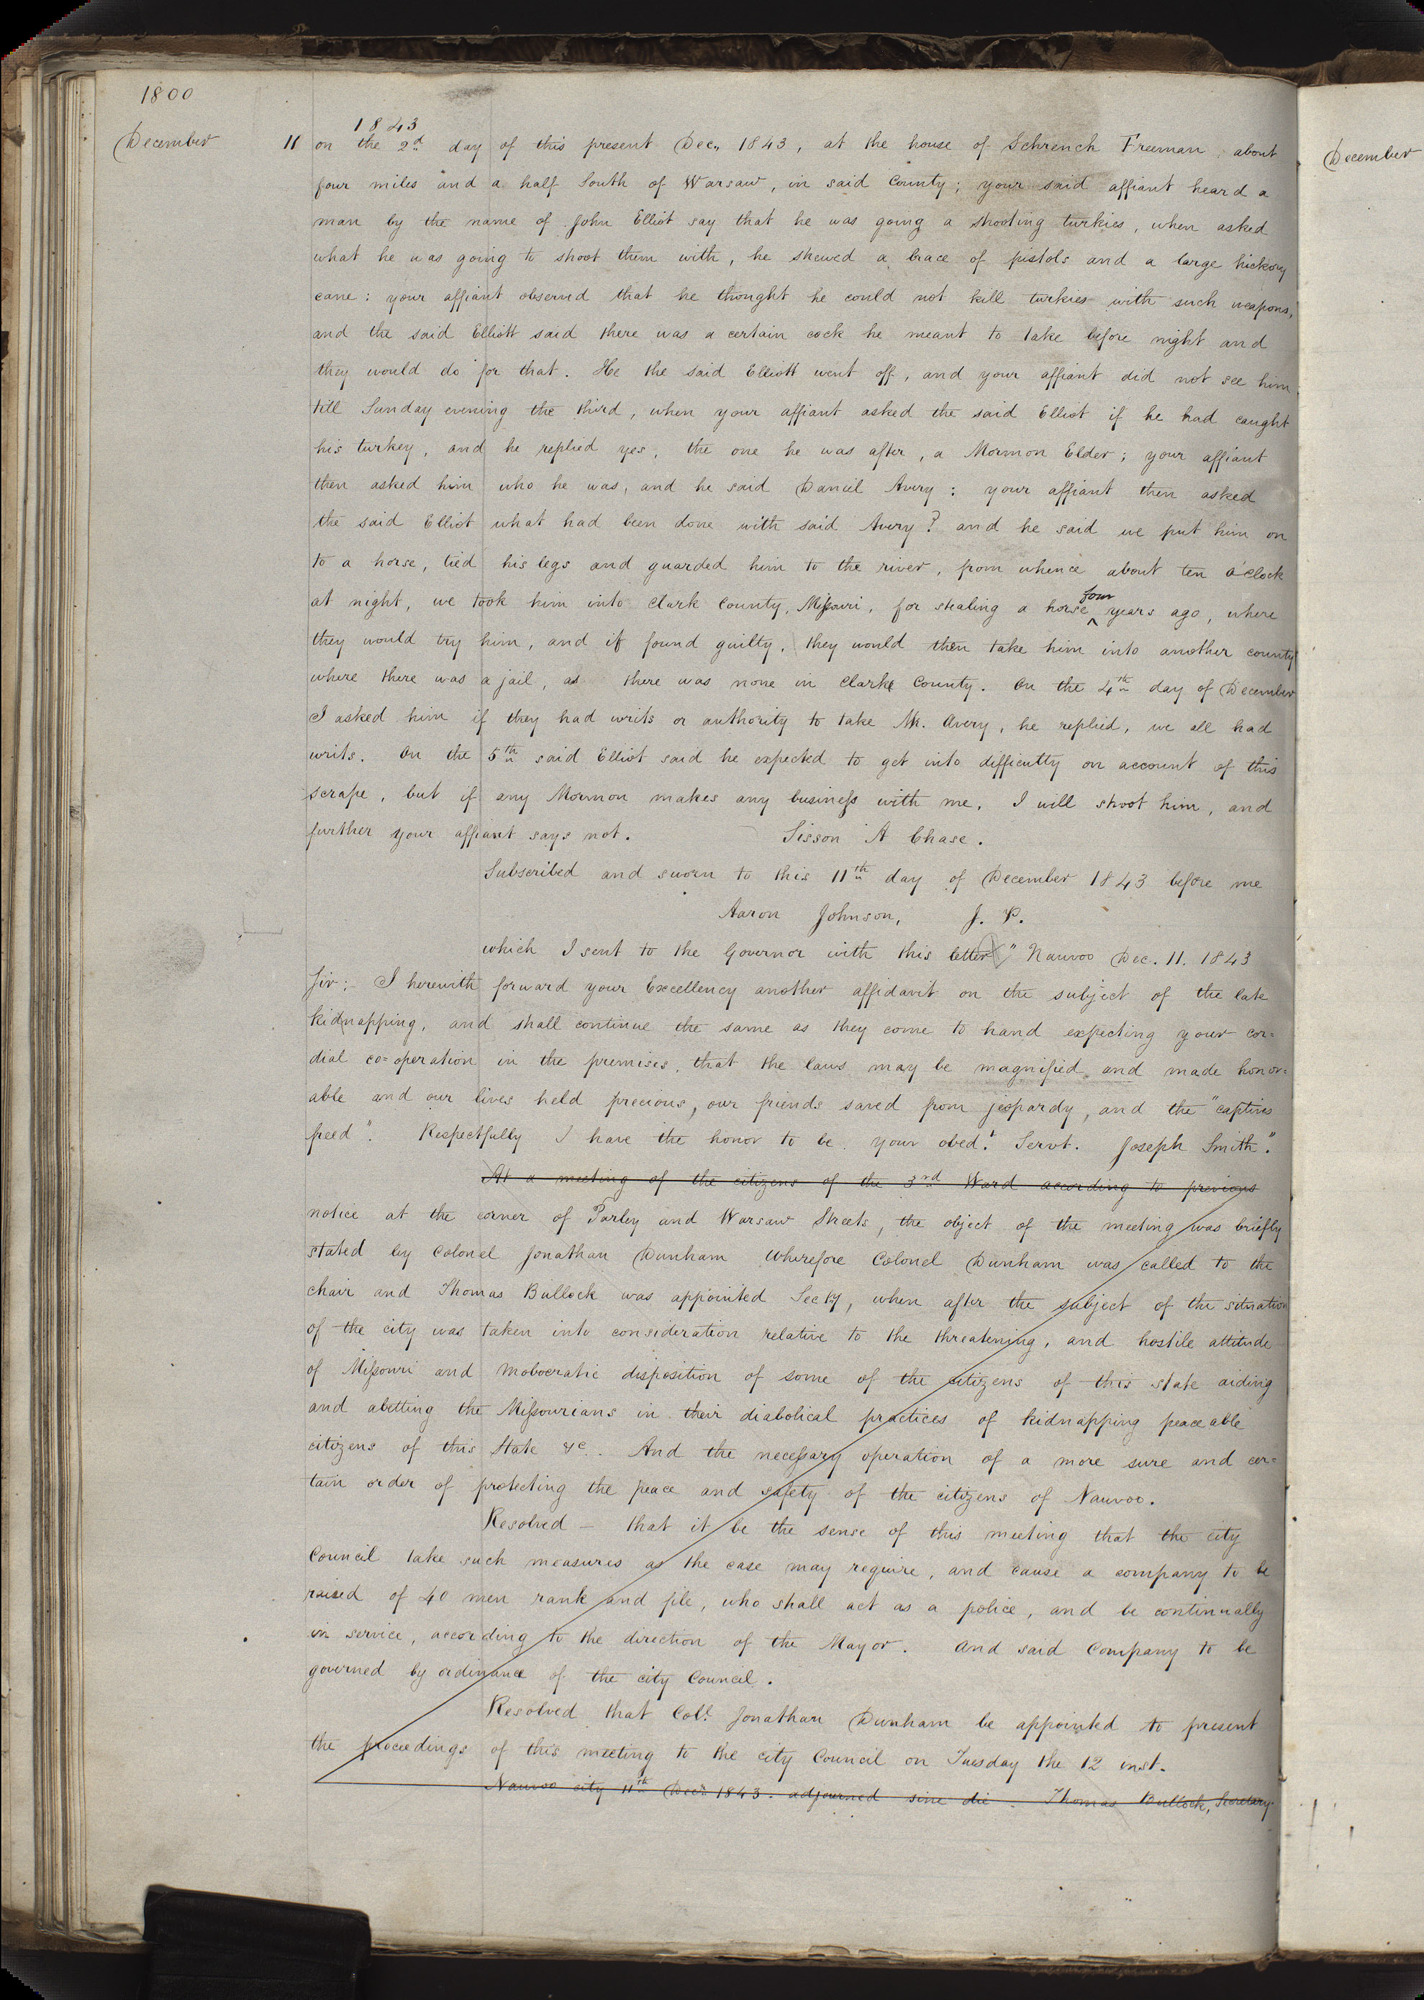 1800
1843
December 11 on the 2d day of this present Dec. 1843, at the house of Schrench Freeman about
four miles and a half South of Warsaw, in said County; your said affiant heard a
man by the name of John Elliot say that he was going a shooting turkies, when asked
what he was going to shoot them with, he shewed a brace of pistols and a large hickory
cane: your affiant observed that he thought he could not kill turkies with such weapons,
and the said Elliott said there was a certain cock he meant to take before night and
they would do for that. He the said Elliott went off, and your affiant did not see him
till Sunday evening the third, when your affiant asked the said Elliot if he had caught
his turkey, and he replied yes, the one he was after, a Mormon Elder; your affiant
then asked him who he was, and he said Daniel Avery: your affiant then asked
the said Elliot what had been done with said Avery? and he said we put him on
to a horse, tied his legs and guarded him to the river, from whence about ten o'clock
at night, we took him into Clark County, Missouri, for stealing a horse ^four years ago, where
they would try him, and if found guilty, they would then take him into another county
where there was a jail, as there was none in Clarke County. On the 4th day of December
I asked him if they had writs or authority to take Mr. Avery, he replied, we all had
writs. On the 5th said Elliot said he expected to get into difficulty on account of this
scrape, but if any Mormon makes any business with me, I will shoot him, and
further your affiant says not. Sisson A Chase.
Subscribed and sworn to this 11th day of December 1843 before me
Aaron Johnson, J. P.
which I sent to the Governor with this letter "Nauvoo Dec. 11. 1843
Sir: I herewith forward your Excellency another affidavit on the subject of the late
kidnapping, and shall continue the same as they come to hand expecting your cor=
dial co=operation in the premises, that the laws may be magnified and made honor=
able and our lives held precious, our friends saved from jeopardy, and the "captives
freed". Respectfully I have the honor to be your obedt. Servt. Joseph Smith".
At a meeting of the citizens of the 3rd Ward according to previous
notice at the corner of Parley and Warsaw Streets, the object of the meeting was briefly
stated by Colonel Jonathan Dunham Wherefore Colonel Dunham was called to the
chair and Thomas Bullock was appointed Secty, when after the subject of the situation
of the city was taken into consideration relative to the threatening, and hostile attitude
of Missouri and mobocratic disposition of some of the citizens of this state aiding
and abetting the Missourians in their diabolical practices of kidnapping peaceable
citizens of this State &c. And the necessary operation of a more sure and cer=
tain order of protecting the peace and safety of the citizens of Nauvoo.
Resolved – that it be the sense of this meeting that the city
Council take such measures as the case may require, and cause a company to be
raised of 40 men rank and file, who shall act as a police, and be continually
in service, according to the direction of the Mayor. And said Company to be
governed by ordinance of the city Council.
Resolved that Col. Jonathan Dunham be appointed to present
the proceedings of this meeting to the city Council on Tuesday the 12 inst.
Nauvoo city 11th Decr 1843. adjourned sine die. Thomas Bullock, Secretary
December